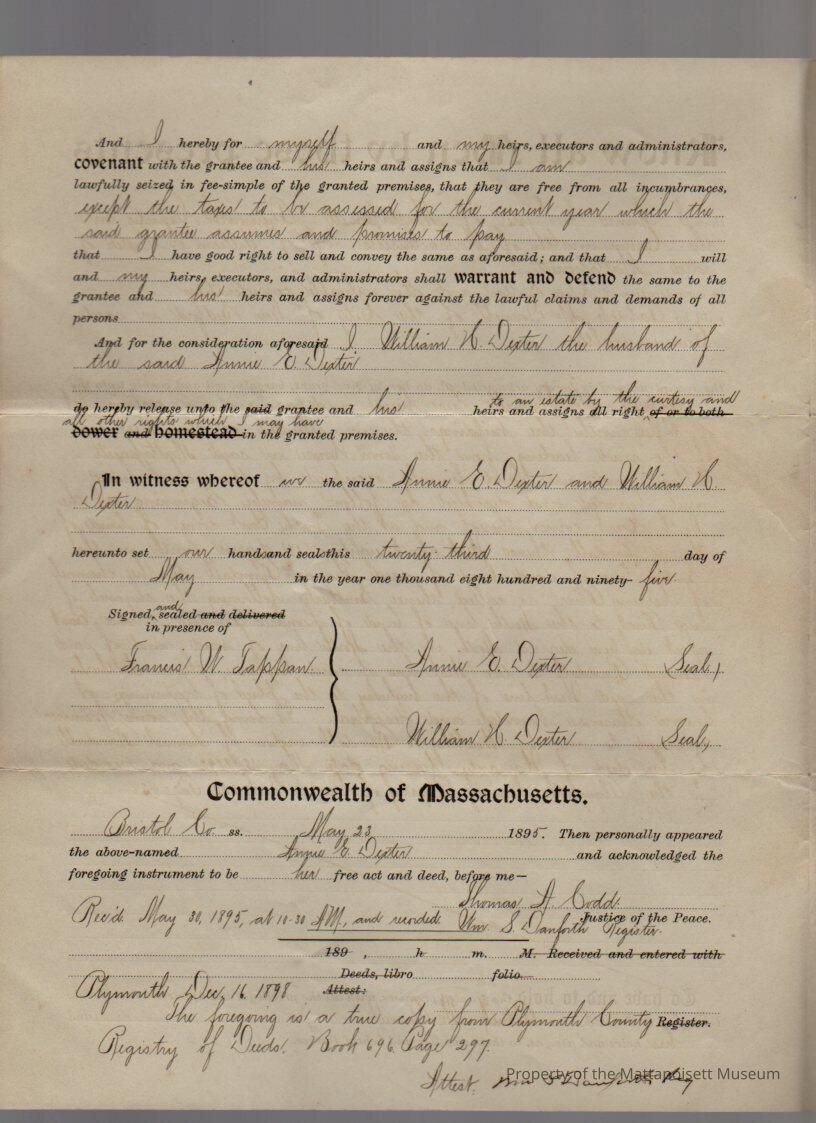 And I hereby for myself and my heirs, executors and administrators,
covenant with the grantee and his heirs and assigns that I am
lawfully seized in fee-simple of the granted premises, that they are free from all incumbrances,
except the taxes to be assessed for the current year which the
said grantee assumes and promises to pay
that I have good right to sell and convey the same as aforesaid; and that I will
and my heirs, executors, and administrators shall warrant and defend the same to the
grantee and his heirs and assigns forever against the lawful claims and demands of all
persons
And for the consideration aforesaid I William H. Dexter the husband of
the said Annie E. Dexter
to an estate by the curtesy and
do hereby release unto the said grantee and his heirs and assigns all right of or to both
all other rights which I may have
dower and homestead in the granted premises.
In witness whereof we the said Annie E. Dexter and William H.
Dexter
hereunto set our hands and seals this twenty-third day of
May in the year one thousand eight hundred and ninety-five.
and
Signed, sealed and delivered
in presence of
Francis W. Tappan. Annie E. Dexter Seal,
William H. Dexter Seal,
Commonwealth of Massachusetts.
Bristol Co. ss. May 23 1895. Then personally appeared
the above-named Annie E. Dexter and acknowledged the
foregoing instrument to be her free act and deed, before me—
Thomas A. Codd.
Justice of the Peace.
Rec'd. May 30, 1895, at 10-30 AM, and recorded. Wm. S. Danforth Register.
189 , h m. M. Received and entered with
Deeds, libro folio
Plymouth Dec, 16. 1898 Attest:
The foregoing is a true copy from Plymouth County Register.
Registry of Deeds. Book 696 Page 297.
Attest. Wm S Danforth Reg
Property of the Mattapoisett Museum